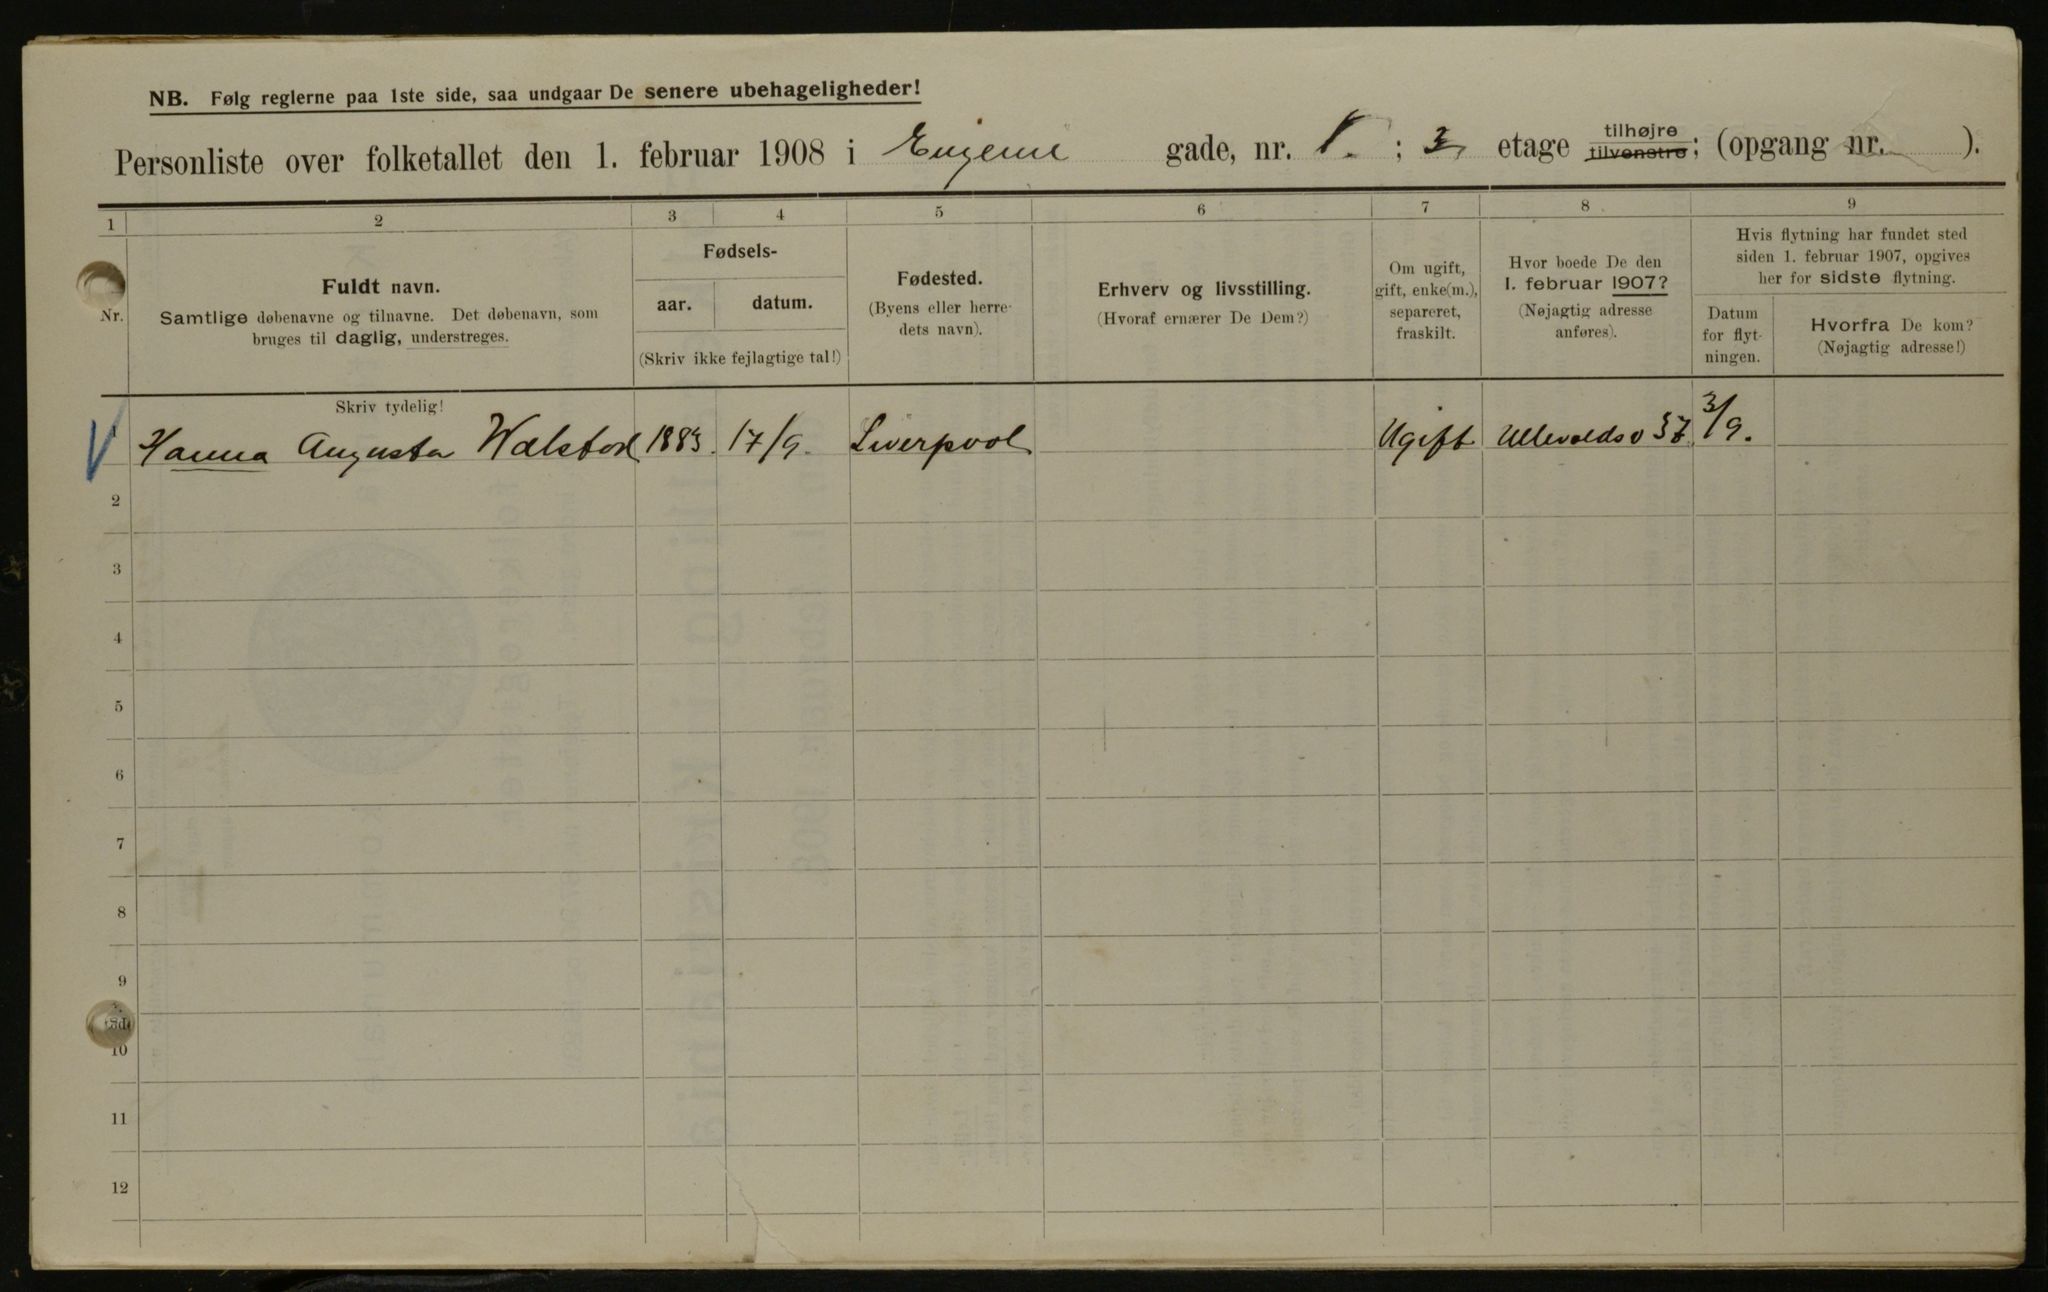 NB. Følg reglerne paa 1ste side, saa undgaar De senere ubehageligheder!
Personliste over folketallet den 1. februar 1908 i Eugenie gade, nr. 1. ; 3 etage tilhøjre tilvenstre; (opgang nr. ).
1 2 3 4 5 6 7 8 9
Nr.
Fuldt navn.
Samtlige døbenavne og tilnavne. Det døbenavn, som
bruges til daglig, understreges.
Fødsels-
aar. datum.
(Skriv ikke fejlagtige tal!)
Fødested.
(Byens eller herre-
dets navn).
Erhverv og livsstilling.
(Hvoraf ernærer De Dem?)
Om ugift,
gift, enke(m.),
separeret,
fraskilt.
Hvor boede De den
1. februar 1907?
(Nøjagtig adresse
anføres).
Hvis flytning har fundet sted
siden 1. februar 1907, opgives
her for sidste flytning.
Datum
for flyt-
ningen.
Hvorfra De kom?
(Nøjagtig adresse!)
Skriv tydelig!
1 Hanna Augusta Walstod 1883. 17/9. Liverpool Ugift Ullevoldsv 37. 3/9.
2
3
4
5
6
7
8
9
10
11
12